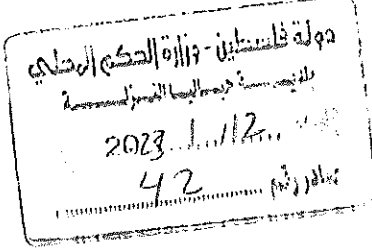 دولة فلسطين - وزارة الحكم المحلي
بلديـــة
2023 / 1 / 12
صادر رقم 42